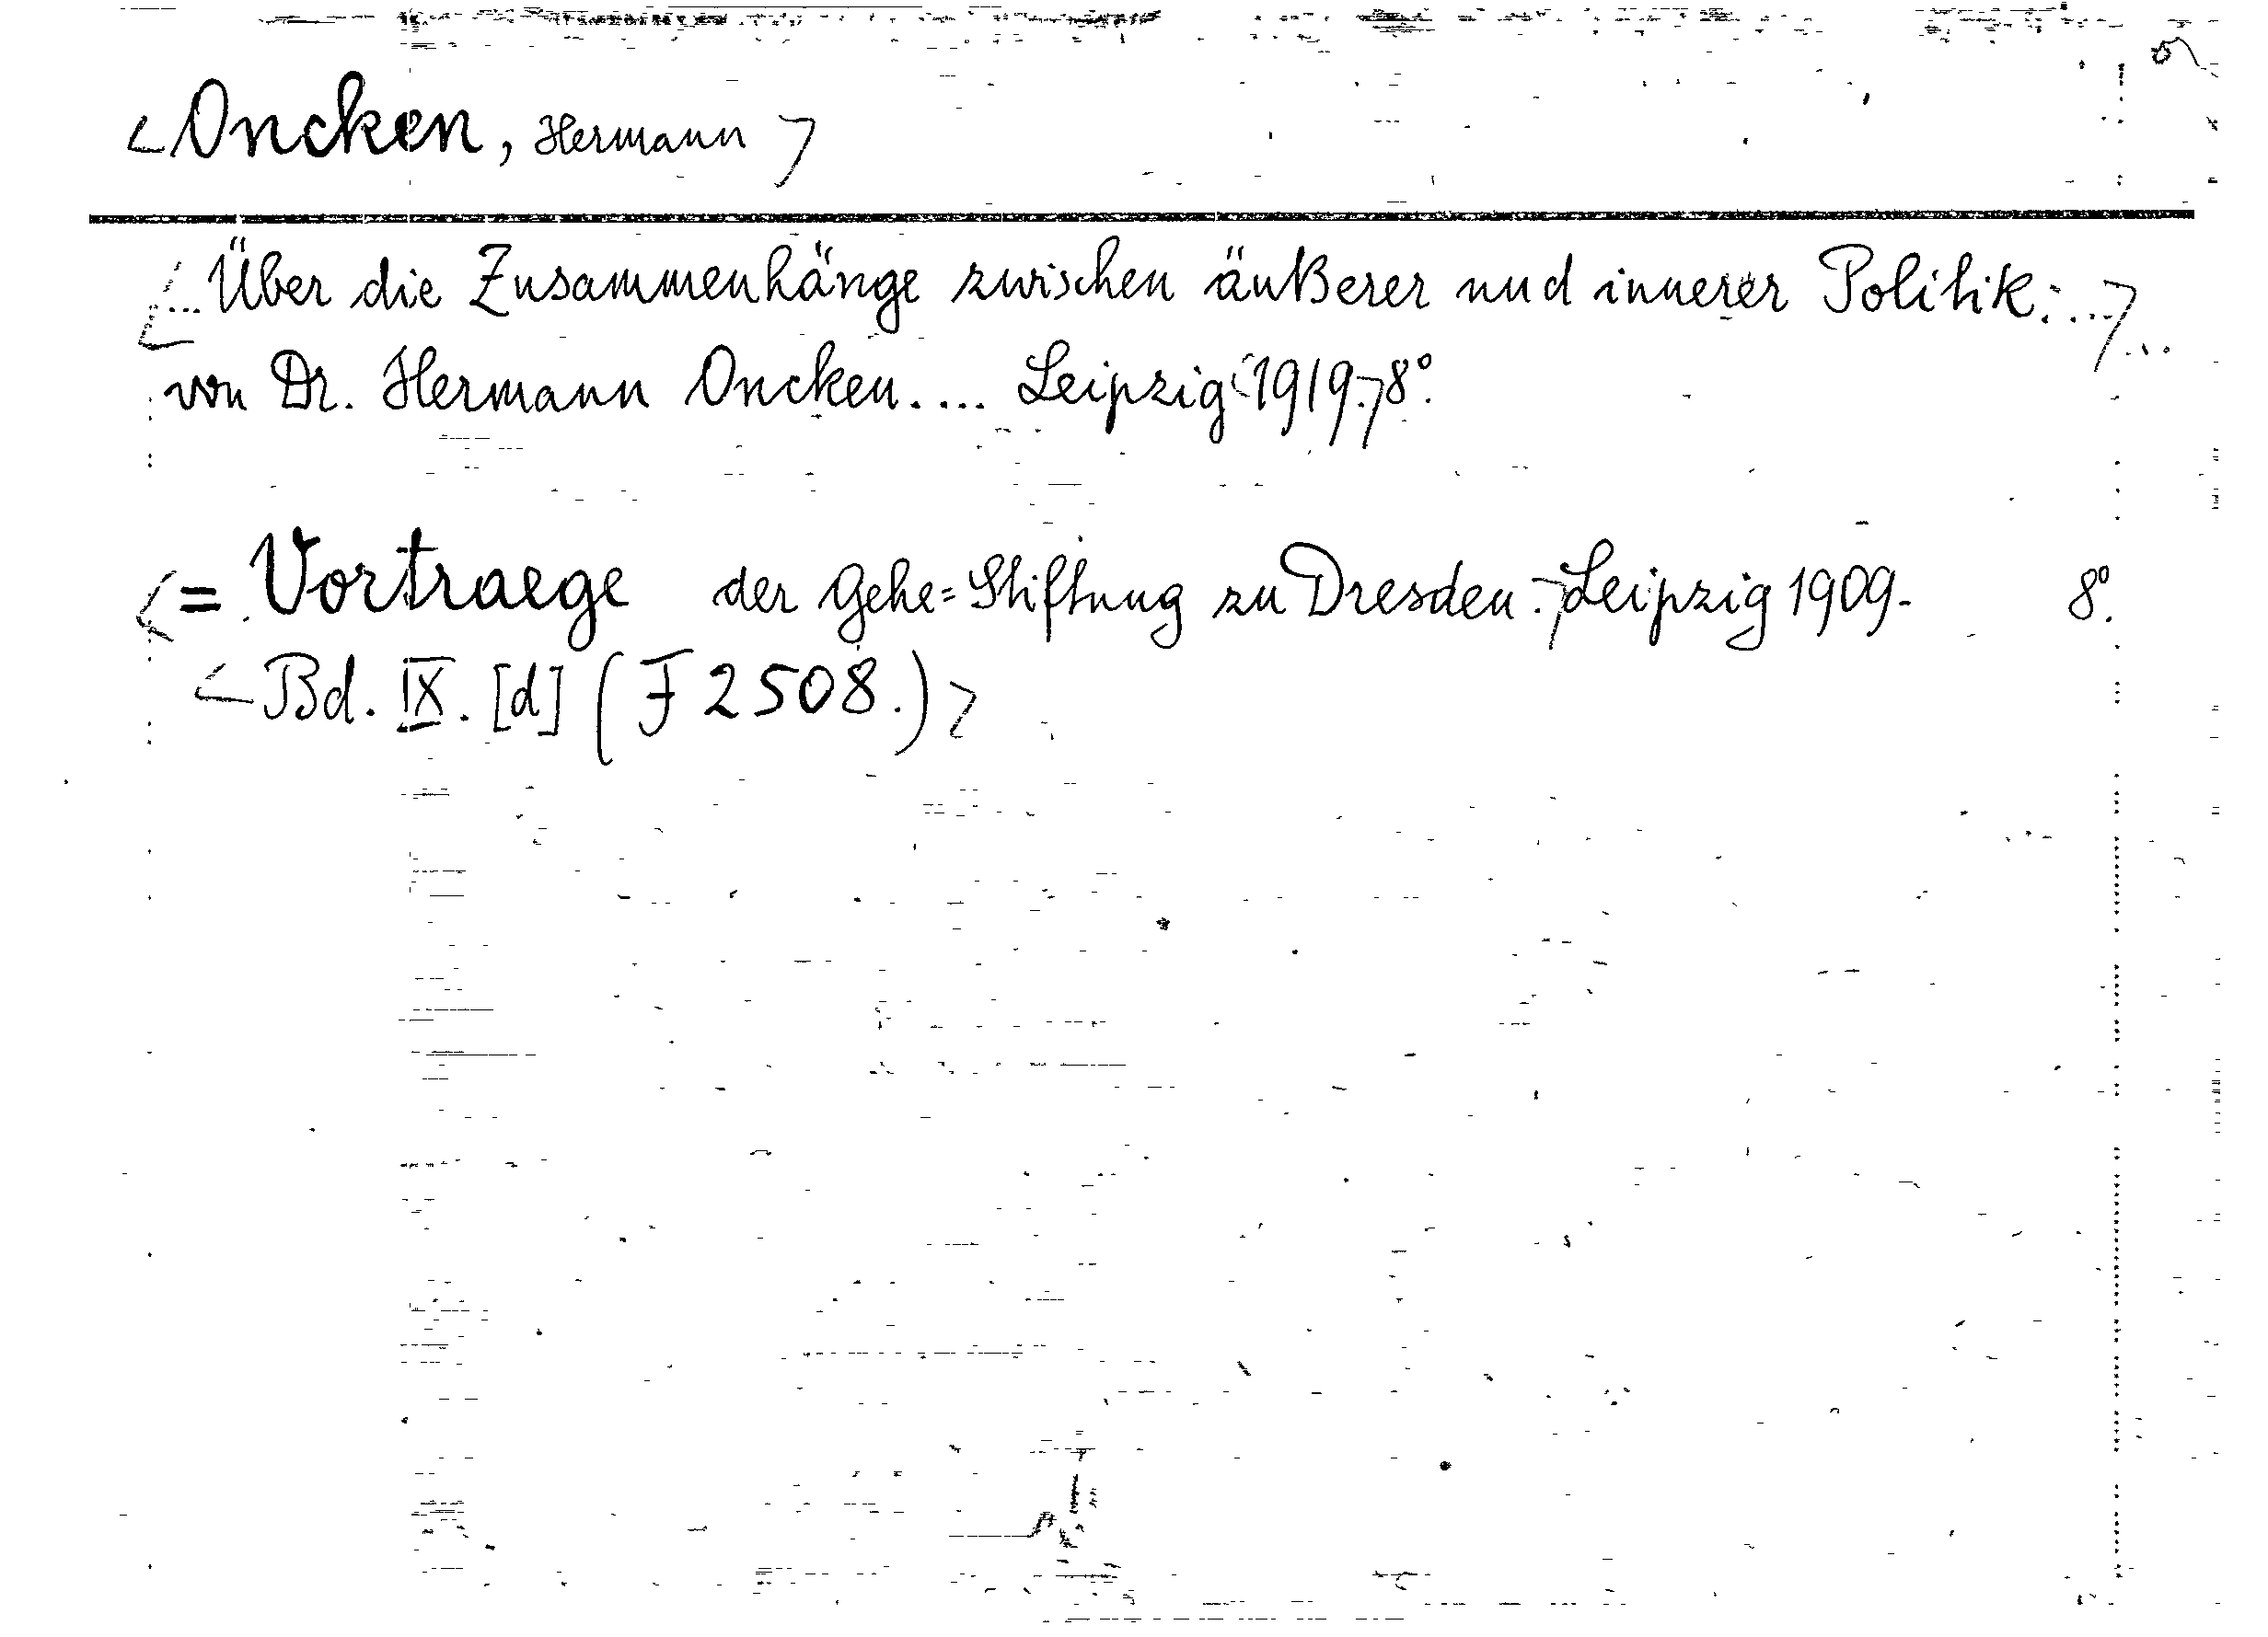 <Oncken, Hermann>
<... Über die Zusammenhänge zwischen äußerer und innerer Politik: ...> ...
von Dr. Hermann Oncken. ... Leipzig <1919.> 8°.
<= Vortraege der Gehe=Stiftung zu Dresden.> Leipzig 1909- 8°.
<Bd. IX. [d] (F 2508.)>